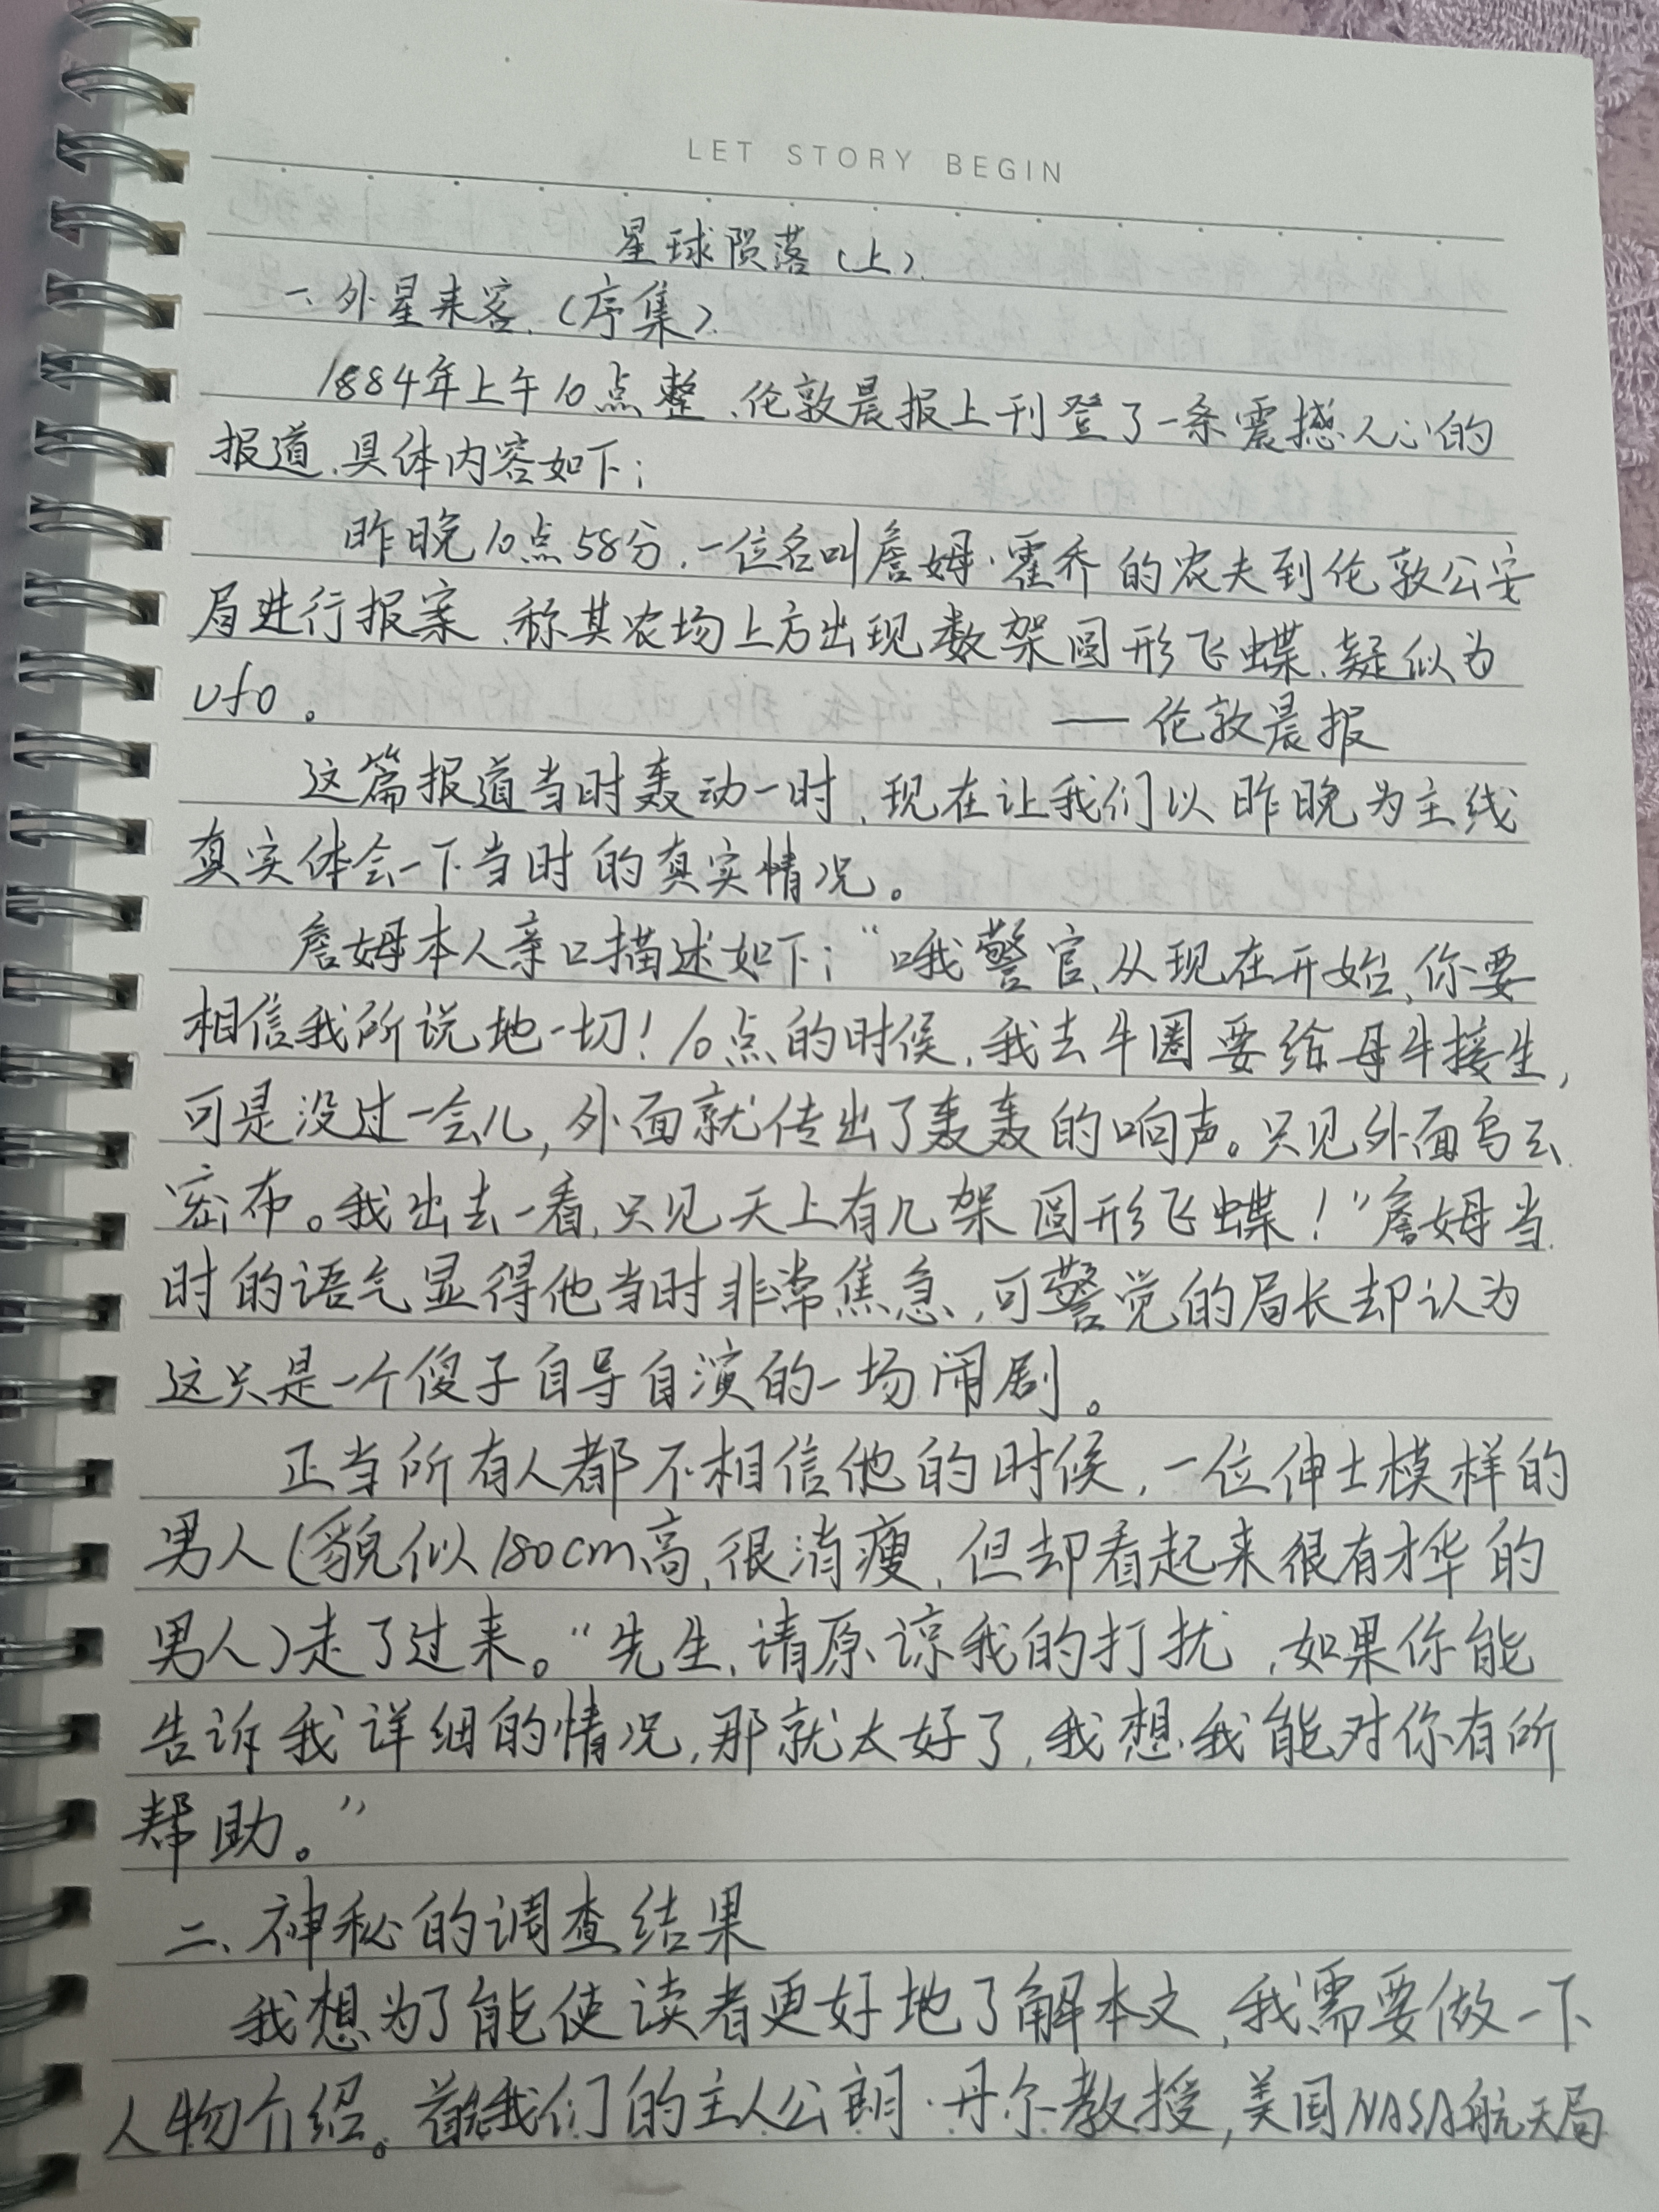 LET STORY BEGIN
星球陨落(上).
一、外星来客.(序集).
1884年上午10点整,伦敦晨报上刊登了一条震撼人心的
报道,具体内容如下:
昨晚10点58分,一位名叫詹姆·霍乔的农夫到伦敦公安
局进行报案,称其农场上方出现数架圆形飞蝶,疑似为
ufo。 ——伦敦晨报
这篇报道当时轰动一时,现在让我们以昨晚为主线
真实体会一下当时的真实情况。
詹姆本人亲口描述如下:“哦警官,从现在开始,你要
相信我所说地一切!10点的时候,我去牛圈要给母牛接生,
可是没过一会儿,外面就传出了轰轰的响声。只见外面乌云
密布。我出去一看,只见天上有几架圆形飞蝶!”詹姆当
时的语气显得他当时非常焦急,可警觉的局长却认为
这只是一个傻子自导自演的一场闹剧。
正当所有人都不相信他的时候,一位伸士模样的
男人(貌似180cm高,很消瘦,但却看起来很有才华的
男人)走了过来。“先生,请原谅我的打扰,如果你能
告诉我详细的情况,那就太好了,我想我能对你有所
帮助。”
二、神秘的调查结果
我想为了能使读者更好地了解本文,我需要做一下
人物介绍。首先我们的主人公朗·丹尔教授,美国NASA航天局